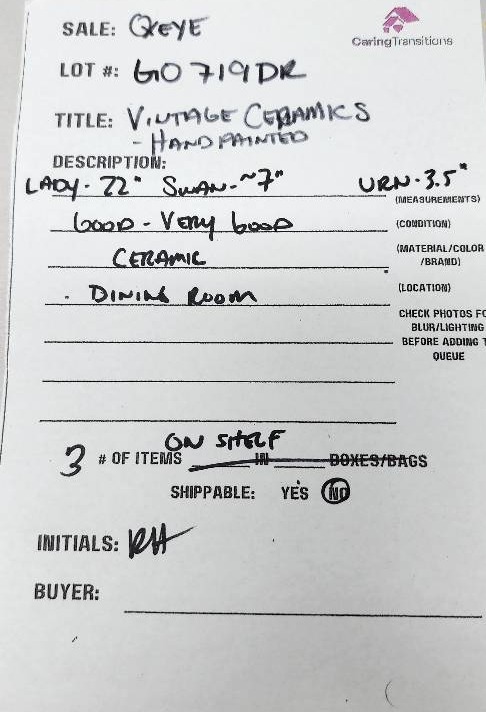 SALE: OXEYE
CaringTransitions
LOT #: GO719DR
TITLE: VINTAGE CERAMICS
- HANDPAINTED
DESCRIPTION:
LADY- 22" SWAN- ~7" URN-3.5"
(MEASUREMENTS)
GOOD - VERY GOOD (CONDITION)
CERAMIC (MATERIAL/COLOR
/BRAND)
DINING ROOM (LOCATION)
CHECK PHOTOS FO
BLUR/LIGHTING
BEFORE ADDING T
QUEUE
ON SHELF
3 # OF ITEMS IN BOXES/BAGS
SHIPPABLE: YES NO
INITIALS: RH
BUYER: